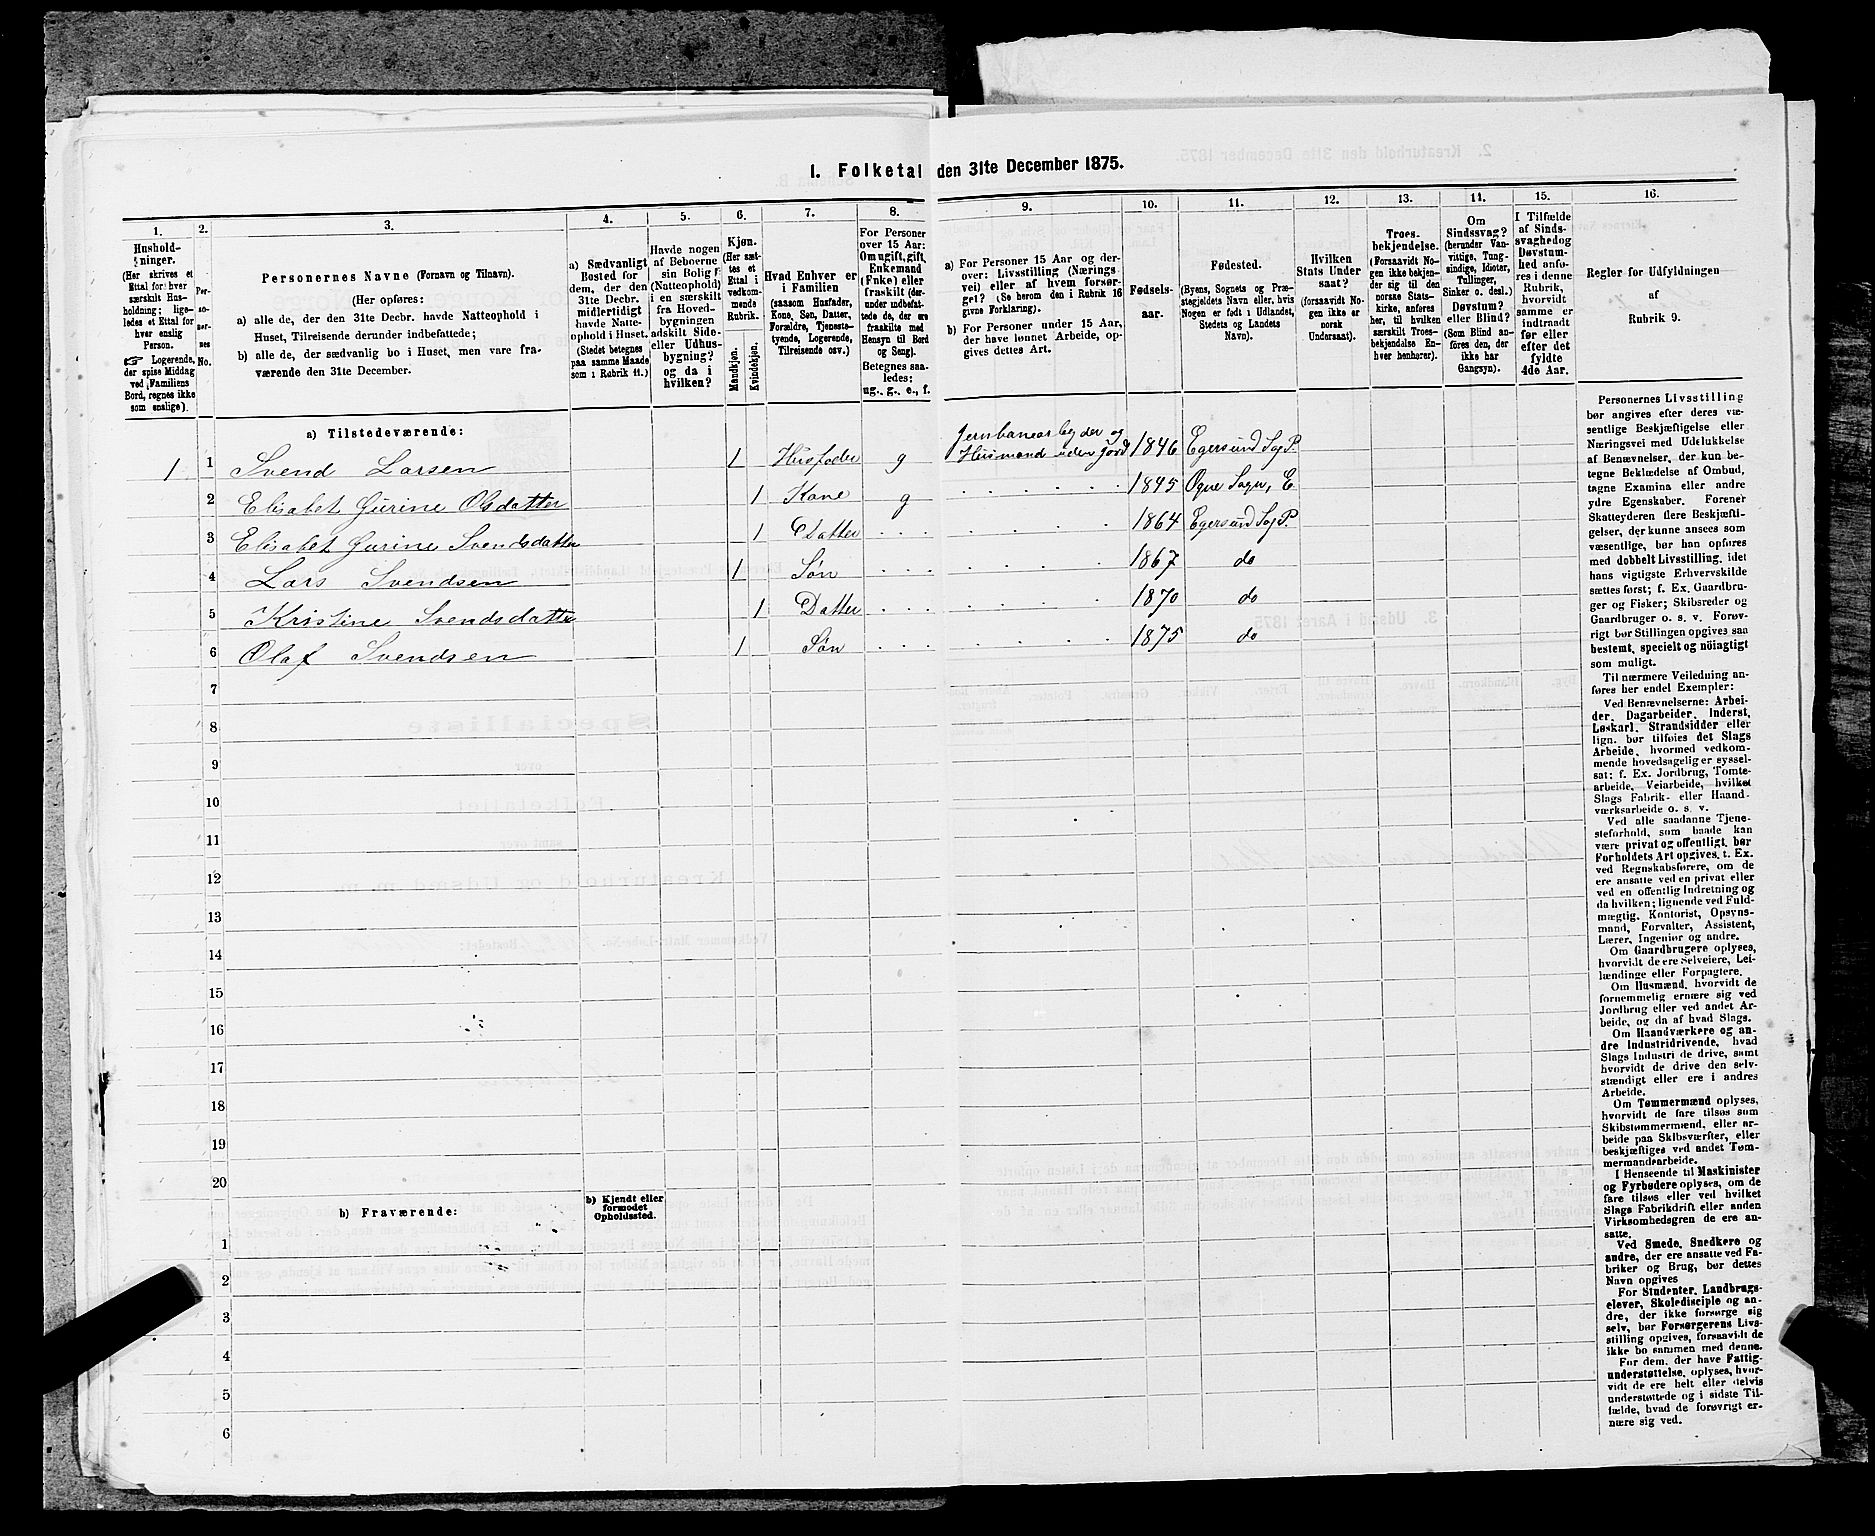 I. Folketal den 31te December 1875.
1.
Hushold-
ninger.
(Her skrives et
Ettal for hver
særskilt Hus-
holdning; lige-
ledes et Ettal for
hver enslig
Person.
Logerende,
der spise Middag
ved Familiens
Bord, regnes ikke
som enslige).
2.
Per-
so-
ner-
nes
No.
3.
Personernes Navne (Fornavn og Tilnavn).
(Her opføres:
a) alle de, der den 31te Decbr. havde Natteophold i
Huset, Tilreisende derunder indbefattede;
b) alle de, der sædvanlig bo i Huset, men vare fra-
værende den 31te December.
4.
a) Sædvanligt
Bosted for
dem, der den
31te Decbr.
midlertidigt
havde Natte-
ophold i Huset.
(Stedet betegnes
paa samme Maade
som i Rubrik 11.)
5.
Havde nogen
af Beboerne
sin Bolig
(Natteophold)
i en særskilt
fra Hoved-
bygningen
adskilt Side-
eller Udhus-
bygning?
og da i
hvilken?
6.
Kjøn.
(Her sæt-
tes et
Ettal i
vedkom-
mende
Rubrik.
Mandkjøn.
Kvindekjøn.
7.
Hvad Enhver er
i Familien
(saasom Husfader,
Kone, Søn, Datter,
Forældre, Tjeneste-
tyende, Logerende,
Tilreisende osv.)
8.
For Personer
over 15 Aar:
Om ugift, gift,
Enkemand
(Enke) eller
fraskilt (der-
under indbefat-
tede de, der ere
fraskilte med
Hensyn til Bord
og Seng).
Betegnes saa-
ledes:
ug., g., e., f.
9.
a) For Personer 15 Aar og der-
over: Livsstilling (Nærings-
vei) eller af hvem forsør-
get? (Se herom den i Rubrik 16
givne Forklaring).
b) For Personer under 15 Aar,
der have lønnet Arbeide, op-
gives dettes Art.
10.
Fødsels-
aar.
11.
Fødested.
(Byens, Sognets og Præ-
stegjeldets Navn eller, hvis
Nogen er født i Udlandet,
Stedets og Landets
Navn).
12.
Hvilken
Stats Under
saat?
(forsaavidt No-
gen ikke er
norsk
Undersaat).
13.
Troes-
bekjendelse.
(Forsaavidt No-
gen ikke bekjen-
der sig til den
norske Stats-
kirke, anføres
her, til hvilken
særskilt Troes-
bekjendelse En-
hver henhører).
14.
Om
Sindssvag?
(herunder Van-
vittige, Tung-
sindige, Idioter,
Tullinger,
Sinker o. desl.)
Døvstum?
eller Blind?
(Som Blind an-
føres den, der
ikke har
Gangsyn).
15.
I Tilfælde
af Sinds-
svaghed og
Døvstum-
hed anfø-
res i denne
Rubrik,
hvorvidt
samme er
indtraadt
før eller
efter det
fyldte
4de Aar.
16.
Regler for Udfyldningen
af
Rubrik 9.
a) Tilstedeværende:
1 1 Svend Larsen 1 Husfader g Jernbanearbeider og
Husmand uden Jord 1846 Egersund Sog. P.
2 Elisabet Gurine Olsdatter 1 Kone g 1845 Ogne Sogn, E
3 Elisabet Gurine Svendsdatter 1 Datter 1864 Egersund Sog P.
4 Lars Svendsen 1 Søn 1867 do
5 Kristine Svendsdatter 1 Datter 1870 do
6 Olaf Svendsen 1 Søn 1875 do
7
8
9
10
11
12
13
14
15
16
17
18
19
20
b) Fraværende:
b) Kjendt eller
formodet
Opholdssted.
1
2
3
4
5
6
Personernes Livsstilling
bør angives efter deres væ-
sentlige Beskjæftigelse eller
Næringsvei med Udelukkelse
af Benævnelser, der kun be-
tegne Beklædelse af Ombud,
tagne Examina eller andre
ydre Egenskaber. Forener
Skatteyderen flere Beskjæfti-
gelser, der kunne ansees som
væsentlige, bør han opføres
med dobbelt Livsstilling, idet
hans vigtigste Erhvervskilde
sættes først; f. Ex. Gaardbru-
ger og Fisker; Skibsreder og
Gaardbruger o. s. v. Forøv-
rigt bør Stillingen opgives saa
bestemt, specielt og nøiagtigt
som muligt.
Til nærmere Veiledning an-
føres her endel Exempler:
Ved Benævnelserne: Arbei-
der, Dagarbeider, Inderst,
Løskarl, Strandsidder eller
lign. bør tilføies det Slags
Arbeide, hvormed vedkom-
mende hovedsagelig er syssel-
sat; f. Ex. Jordbrug, Tomte-
arbeide, Veiarbeide, hvilket
Slags Fabrik- eller Haand-
værksarbeide o. s. v.
Ved alle saadanne Tjene-
steforhold, som baade kan
være privat og offentligt, bør
Forholdets Art opgives, t. Ex.
ved Regnskabsførere, om de
ere ansatte ved en privat eller
ved en offentlig Indretning og
da hvilken; lignende ved Fuld-
mægtig, Kontorist, Opsyns-
mand, Forvalter, Assistent,
Lærer, Ingeniør og andre.
Om Gaardbrugere oplyses,
hvorvidt de ere Selveiere, Lei-
lændinge eller Forpagtere.
Om Husmænd, hvorvidt de
fornemmelig ernære sig ved
Jordbrug eller ved andet Ar-
beide, og da af hvad Slags.
Om Haandværkere og an-
dre Industridrivende, hvad
Slags Industri de drive, samt
hvorvidt de drive den selv-
stændigt eller ere i andres
Arbeide.
Om Tømmermænd oplyses,
hvorvidt de fare tilsøs som
Skibstømmermænd, eller ar-
beide paa Skibsværfter, eller
beskjæftiges ved andet Tøm-
mermandsarbeide.
I Henseende til Maskinister
og Fyrbødere oplyses, om de
fare tilsøs eller ved hvilket
Slags Fabrikdrift eller anden
Virksomhedsgren de ere an-
satte.
Ved Smede, Snedkere og
andre, der ere ansatte ved Fa-
briker og Brug, bør dettes
Navn opgives
For Studenter, Landbrugs-
elever, Skoledisciple og an-
dre, der ikke forsørge sig
selv, bør Forsørgerens Livs-
stilling opgives, forsaavidt de
ikke bo sammen med denne.
For dem, der have Fattig-
understøttelse, oplyses, hvor-
vidt de ere helt eller delvis
understøttede og i sidste Til-
fælde, hvad de forøvrigt er-
nære sig ved.